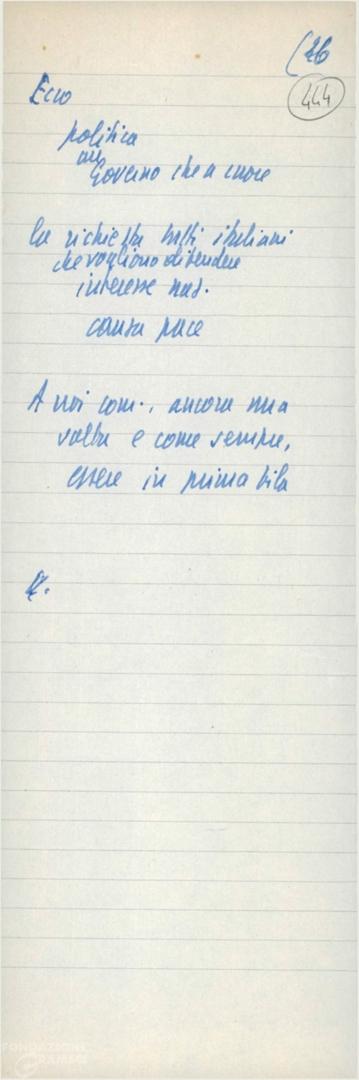 (26
444
Ecco
politica
un
Governo che a cuore
la richiesta tutti italiani
che vogliono difendere
interesse naz.
causa pace
A noi com., ancora una
volta e come sempre,
essere in prima fila
FONDAZIONE
GRAMSCI